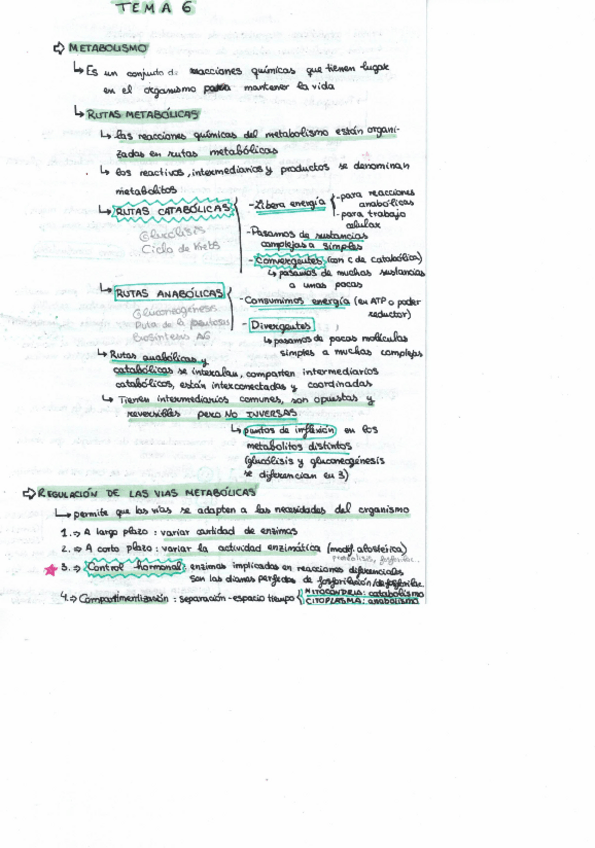 TEMA 6
⇨ METABOLISMO
↳ Es un conjunto de reacciones químicas que tienen lugar
en el organismo para mantener la vida
↳ RUTAS METABÓLICAS
↳ las reacciones químicas del metabolismo están organi-
zadas en rutas metabólicas
↳ los reactivos, intermediarios y productos se denominan
metabolitos
↳ RUTAS CATABÓLICAS
Glucólisis
Ciclo de Krebs
- Libera energía
- para reacciones
anabólicas
- para trabajo
celular
- Pasamos de sustancias
complejas a simples
- Convergentes (con c de catabólica)
↳ pasamos de muchas sustancias
a unas pocas
↳ RUTAS ANABÓLICAS
Gluconeogénesis
Ruta de las pentosas
Biosíntesis AG
- Consumimos energía (en ATP o poder
reductor)
- Divergentes
↳ pasamos de pocas moléculas
simples a muchas complejas
↳ Rutas anabólicas y
catabólicas se intercalan, comparten intermediarios
catabólicos, están interconectadas y coordinadas
↳ Tienen intermediarios comunes, son opuestas y
reversibles pero NO INVERSAS
↳ puntos de inflexión en los
metabolitos distintos
(glucólisis y gluconeogénesis
se diferencian en 3)
⇨ REGULACIÓN DE LAS VIAS METABÓLICAS
↳ permite que las vías se adapten a las necesidades del organismo
1. ⇒ A largo plazo: variar cantidad de enzimas
2. ⇒ A corto plazo: variar la actividad enzimática (modif. alostérica)
3. ⇒ Control hormonal: enzimas implicadas en reacciones diferenciales
son las dianas perfectas de fosforilación/desfosforilac.
4. ⇒ Compartimentización: separación-espacio tiempo
MITOCONDRIA: catabolismo
CITOPLASMA: anabolismo